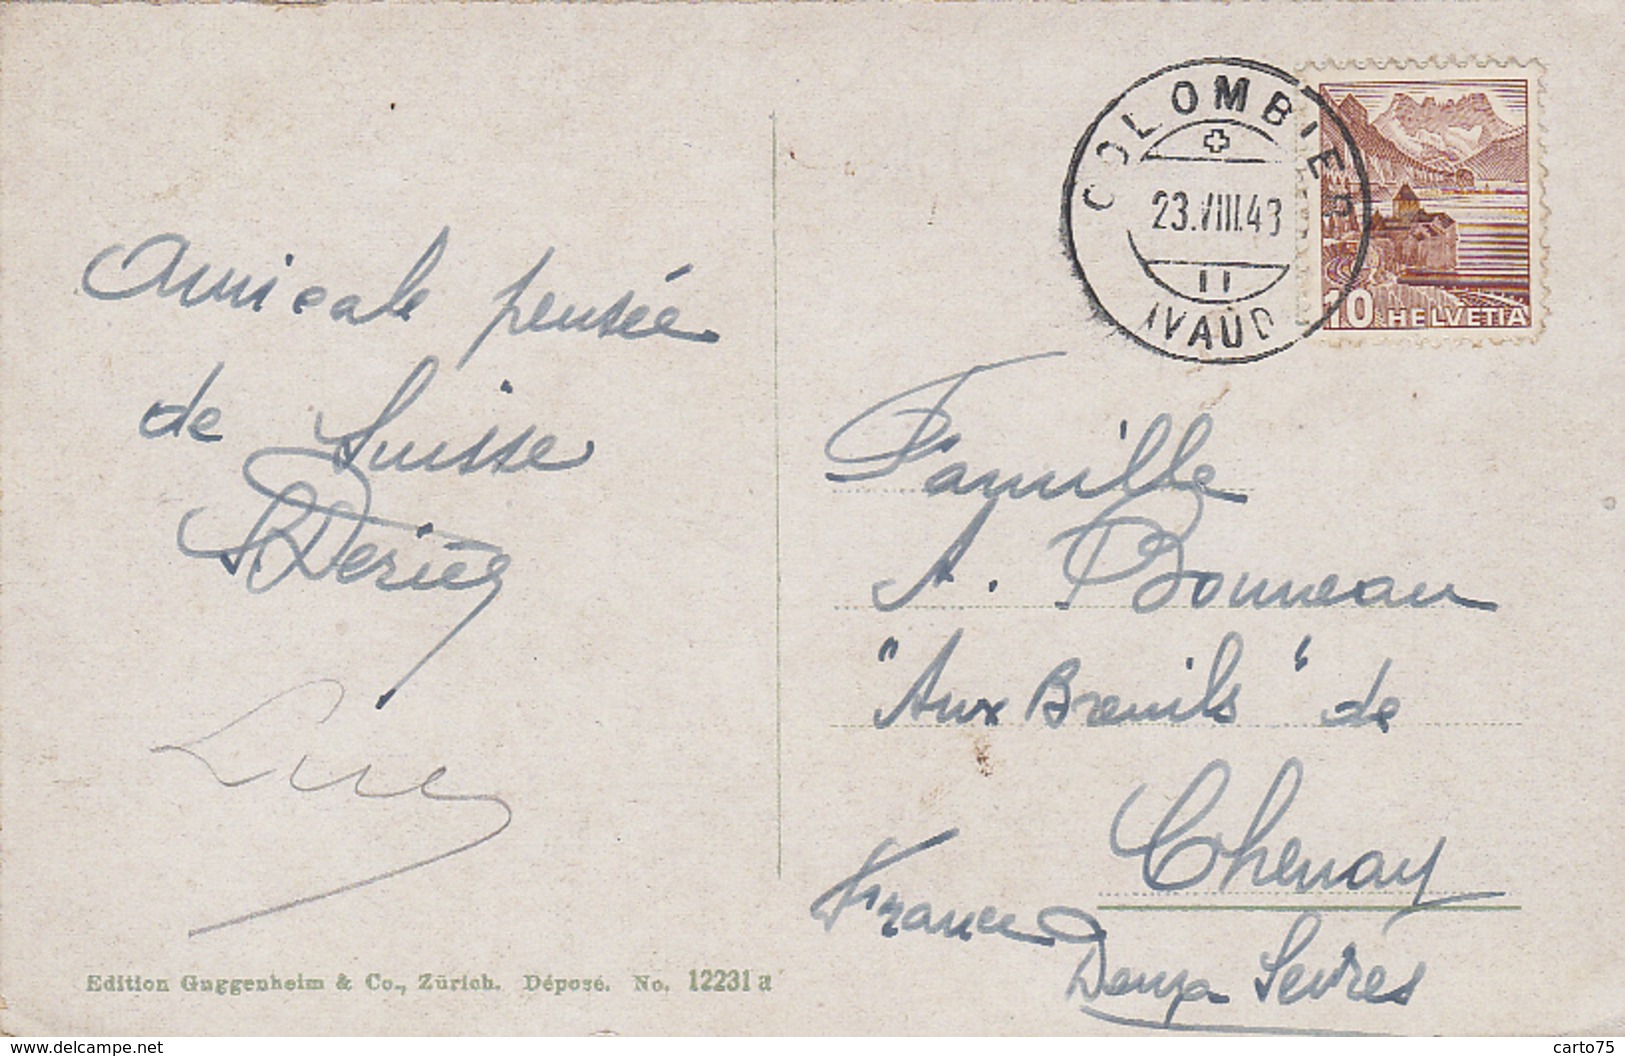 Amicale pensée
de Suisse
Luc
Edition Guggenheim & Co., Zürich. Déposé. No. 12231 a
COLOMBIER
23.VIII.48
11
(VAUD)
10 HELVETIA
Famille
A. Bonneau
"Aux Breuils" de
Chenay
France
Deux Sèvres
www.delcampe.net
carto75